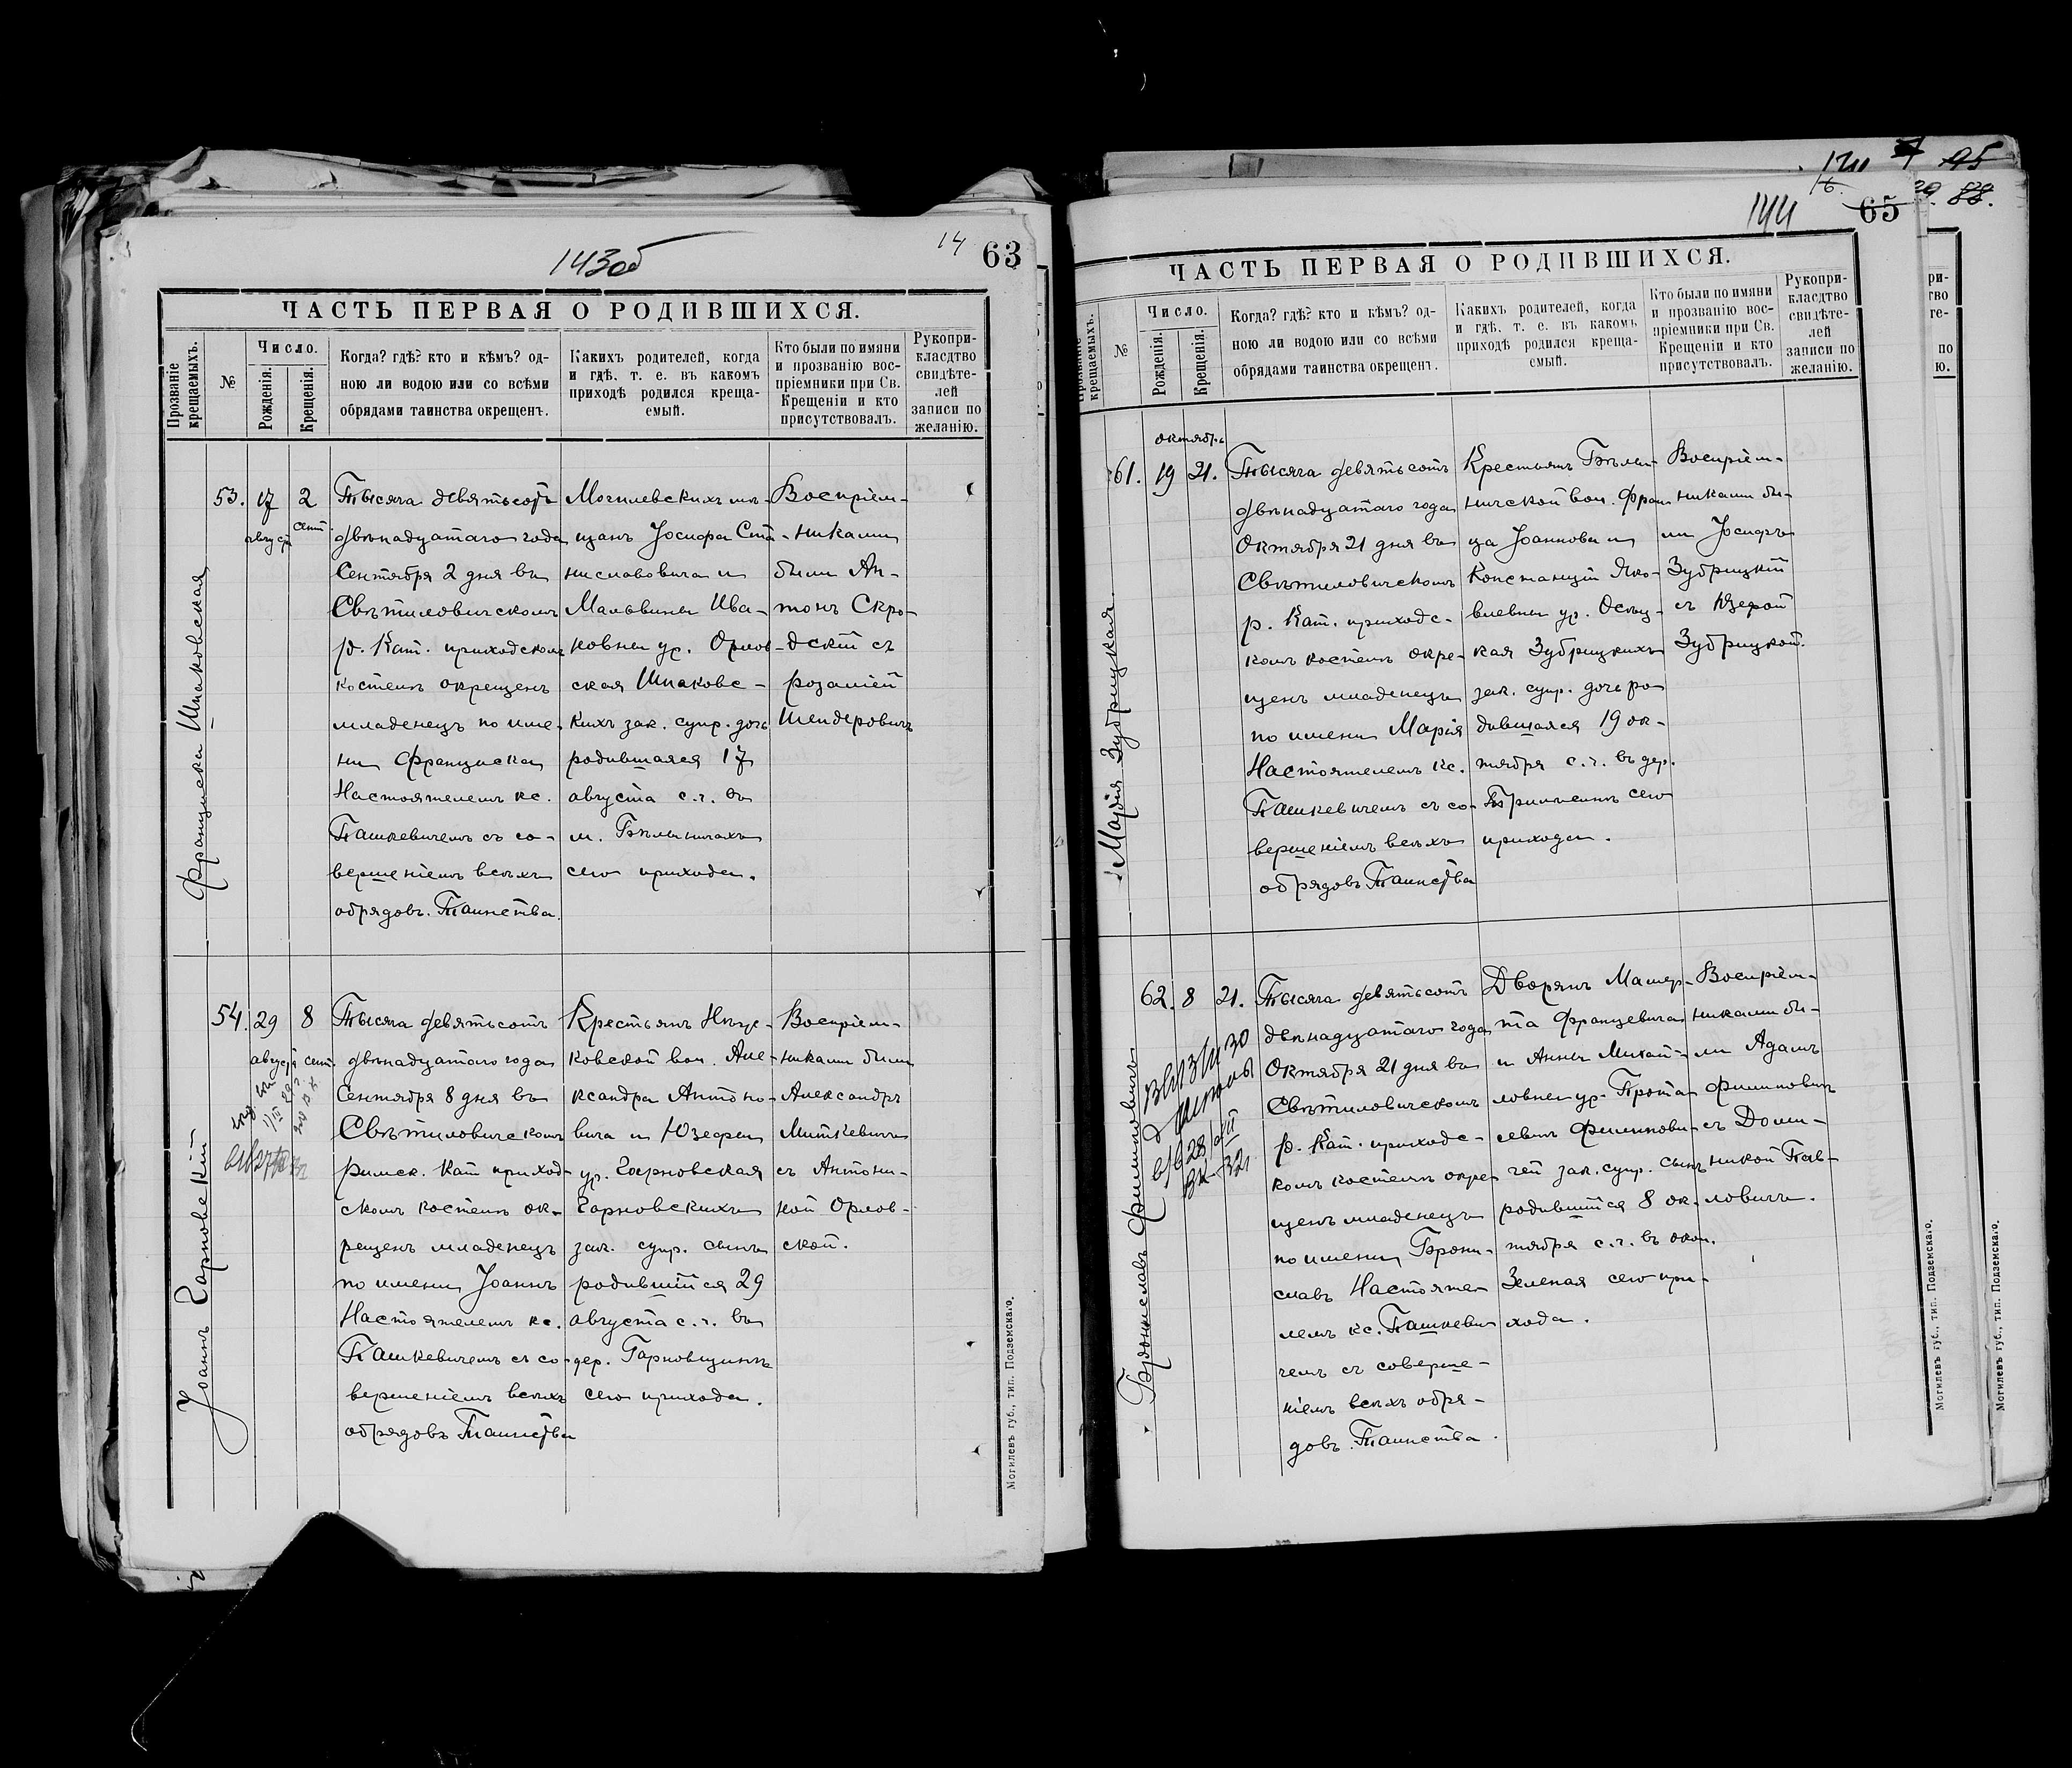 143об
14
63
ЧАСТЬ ПЕРВАЯ О РОДИВШИХСЯ.
Прозваніе крещаемыхъ.
№
Число.
Рожденія.
Крещенія.
Когда? гдѣ? кто и кѣмъ? од-
ною ли водою или со всѣми
обрядами таинства окрещенъ.
Какихъ родителей, когда
и гдѣ. т. е. въ какомъ
приходѣ родился креща-
емый.
Кто были по имяни
и прозванію вос-
пріемники при Св.
Крещеніи и кто
присутствовалъ.
Рукопри-
класдтво
свидѣте-
лей
записи по
желанію.
Франциска Шпаковская
53.
17
август
2
сент.
Тысяча девятьсотъ
двѣнадцатаго года
Сентября 2 дня въ
Свѣтиловическомъ
р. Кат. приходскомъ
костелѣ окрещенъ
младенецъ по име-
ни Франциска
Настоятелемъ кс.
Пашкевичемъ съ со-
вершеніемъ всѣхъ
обрядовъ Таинства.
Могилевскихъ мѣ-
щанъ Іосифа Ста-
ниславовича и
Мальвины Ива-
новны ур. Орлов-
ская Шпаковс-
кихъ зак. супр. дочь
родившаяся 17
августа с.г. въ
м. Бѣлыничахъ
сего прихода.
Воспріем-
никами
были Ан-
тонъ Скро-
дскій съ
Розаліей
Шендеровичъ
Іоаннъ Гарновскій
54.
29
август
8
сент.
Тысяча девятьсотъ
двѣнадцатаго года
Сентября 8 дня въ
Свѣтиловическомъ
римск. Кат приход-
скомъ костелѣ ок-
рещенъ младенецъ
по имени Іоаннъ
Настоятелемъ кс.
Пашкевичемъ съ со-
вершеніемъ всѣхъ
обрядовъ Таинства
Крестьянъ
ковской вол. Але-
ксандра Антоно-
вича и Юзефы
ур. Гарновская
Гарновскихъ
зак. супр. сынъ
родившійся 29
августа с.г. въ
дер. Гарновщинѣ
сего прихода.
Воспріем-
никами были
Александръ
Миткевичъ
съ Антони-
ной Орлов-
ской.
Могилевъ губ., тип. Подземскаго.
144
65
95
88.
ЧАСТЬ ПЕРВАЯ О РОДИВШИХСЯ.
Прозваніе крещаемыхъ.
№
Число.
Рожденія.
Крещенія.
Когда? гдѣ? кто и кѣмъ? од-
ною ли водою или со всѣми
обрядами таинства окрещенъ.
Какихъ родителей, когда
и гдѣ. т. е. въ какомъ
приходѣ родился креща-
емый.
Кто были по имяни
и прозванію вос-
пріемники при Св.
Крещеніи и кто
присутствовалъ.
Рукопри-
класдтво
свидѣте-
лей
записи по
желанію.
Марія Зубрицкая
октября
61.
19
21.
Тысяча девятьсотъ
двѣнадцатаго года
Октября 21 дня въ
Свѣтиловическомъ
р. Кат. приходс-
комъ костелѣ окре-
щенъ младенецъ
по имени Марія
Настоятелемъ кс.
Пашкевичемъ съ со-
вершеніемъ всѣхъ
обрядовъ Таинства
Крестьянъ Бѣлы-
ничской вол. Фран
ца Іоаннова и
Констанціи Яко-
влевны ур.
кая Зубрицкихъ
зак. супр. дочь ро
дившаяся 19 ок-
тября с.г. въ дер.
сего
прихода.
Воспріем-
никами бы-
ли Іосифъ
Зубрицкій
съ Юзефой
Зубрицкой.
Брониславъ Филиповичъ
62.
8
21.
Тысяча девятьсотъ
двѣнадцатаго года
Октября 21 дня въ
Свѣтиловическомъ
р. Кат. приходс-
комъ костелѣ окре-
щенъ младенецъ
по имени Брони-
славъ Настояте-
лемъ кс. Пашкеви
чемъ съ соверше-
ніемъ всѣхъ обря-
довъ Таинства.
Дворянъ
та Францевича
и Анны Михай-
ловны ур. Прота-
севичъ Филипови-
чей зак. супр. сынъ
родившійся 8 ок-
тября с.г. въ окол.
Зеленая сего при-
хода.
Воспріем-
никами бы-
ли Адамъ
Филиповичъ
съ Доми-
никой Пав-
ловичъ.
Могилевъ губ., тип. Подземскаго.
Могилевъ губ., тип. Подземскаго.